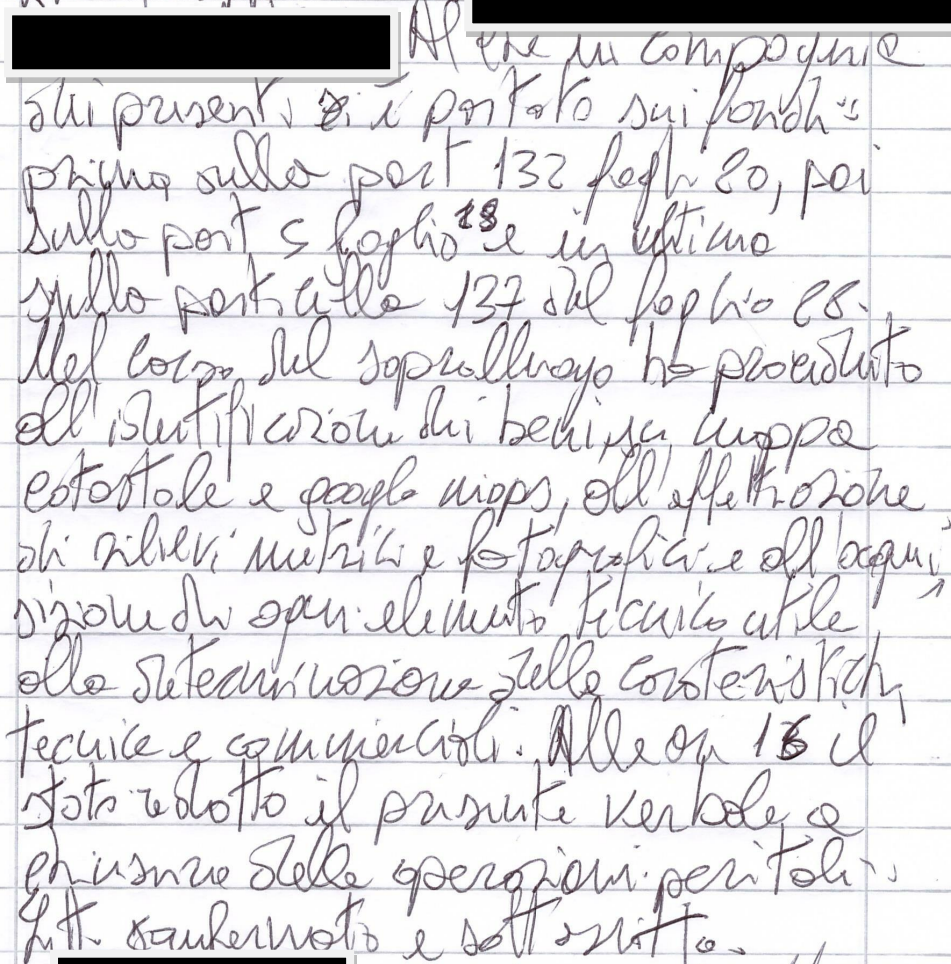 in compagnia
dei presenti si è portato sui fondi:
prima sulla part 132 fogli 20, poi
sulla part 5 foglio 18 e in ultimo
sulla particella 137 del foglio 28.
Nel corso del sopralluogo ho proceduto
all'identificazione dei beni su mappa
catastale e google maps, all'effettuazione
di rilievi metrici e fotografici e all'acqui
sizione di ogni elemento tecnico utile
alla determinazione delle caratteristich
tecnice e commerciali. Alle ore 16 è
stato redatto il presente verbale a
chiusura delle operazioni peritali.
Lett. confermato e sottoscritto.